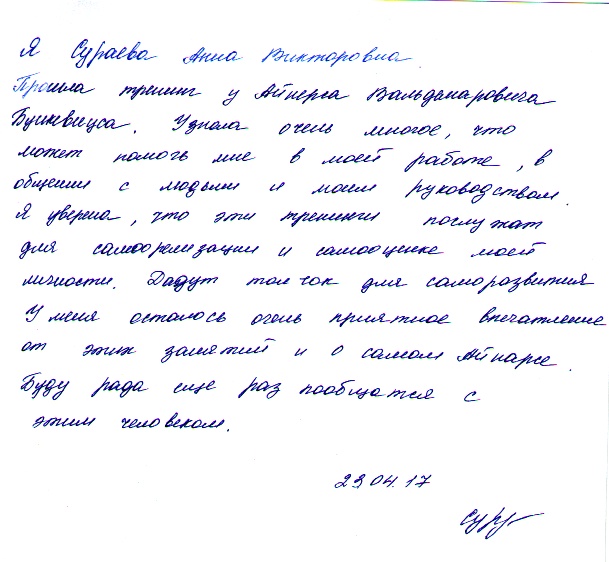 Я Сураева Анна Викторовна
Прошла тренинг у Айнарса Вальдемаровича
Бушкевицса. Узнала очень многое, что
может помочь мне в моей работе, в
общении с людьми и моим руководством.
Я уверена, что эти тренинги послужат
для самоорелизации и самооценке моей
личности. Дадут толчок для саморазвития
У меня осталось очень приятное впечатление
от этих занятий и о самом Айнарсе.
Буду рада еще раз пообщатся с
этим человеком.
29.04.17